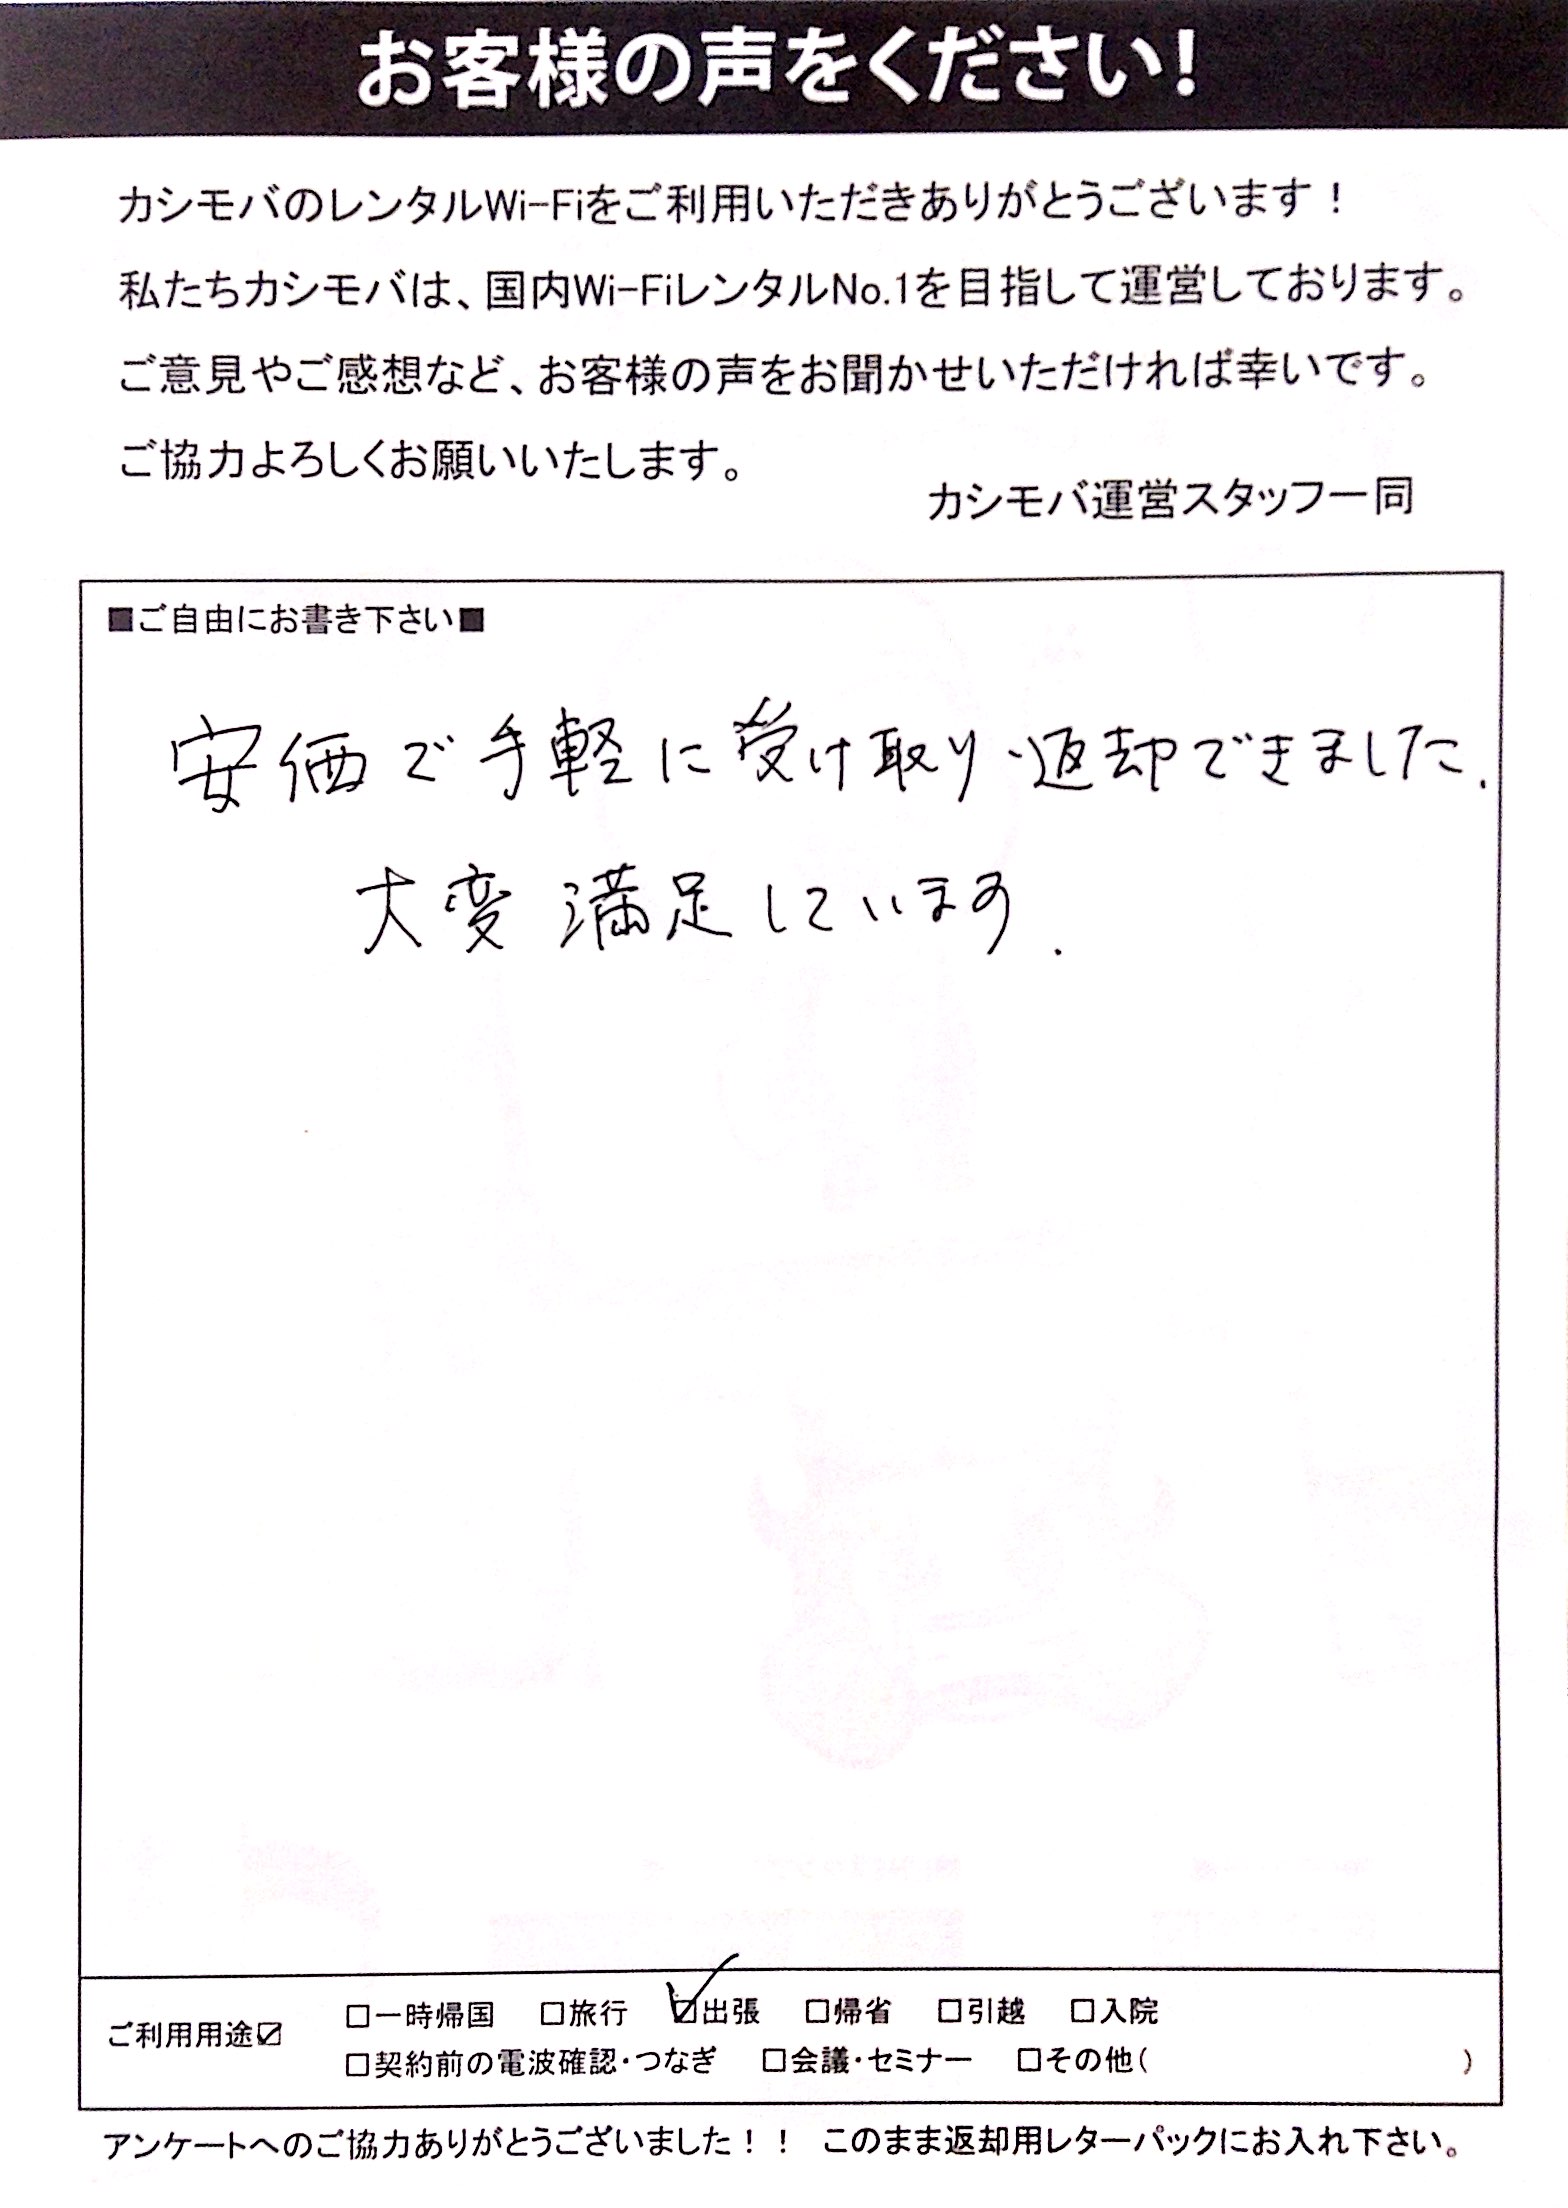 お客様の声をください!
カシモバのレンタルWi-Fiをご利用いただきありがとうございます！
私たちカシモバは、国内Wi-FiレンタルNo.1を目指して運営しております。
ご意見やご感想など、お客様の声をお聞かせいただければ幸いです。
ご協力よろしくお願いいたします。
カシモバ運営スタッフ一同
■ご自由にお書き下さい■
安価で手軽に受け取り・返却できました.
大変満足しています.
ご利用用途☑
□一時帰国 □旅行 ☑出張 □帰省 □引越 □入院
□契約前の電波確認・つなぎ □会議・セミナー □その他( )
アンケートへのご協力ありがとうございました！！ このまま返却用レターパックにお入れ下さい。